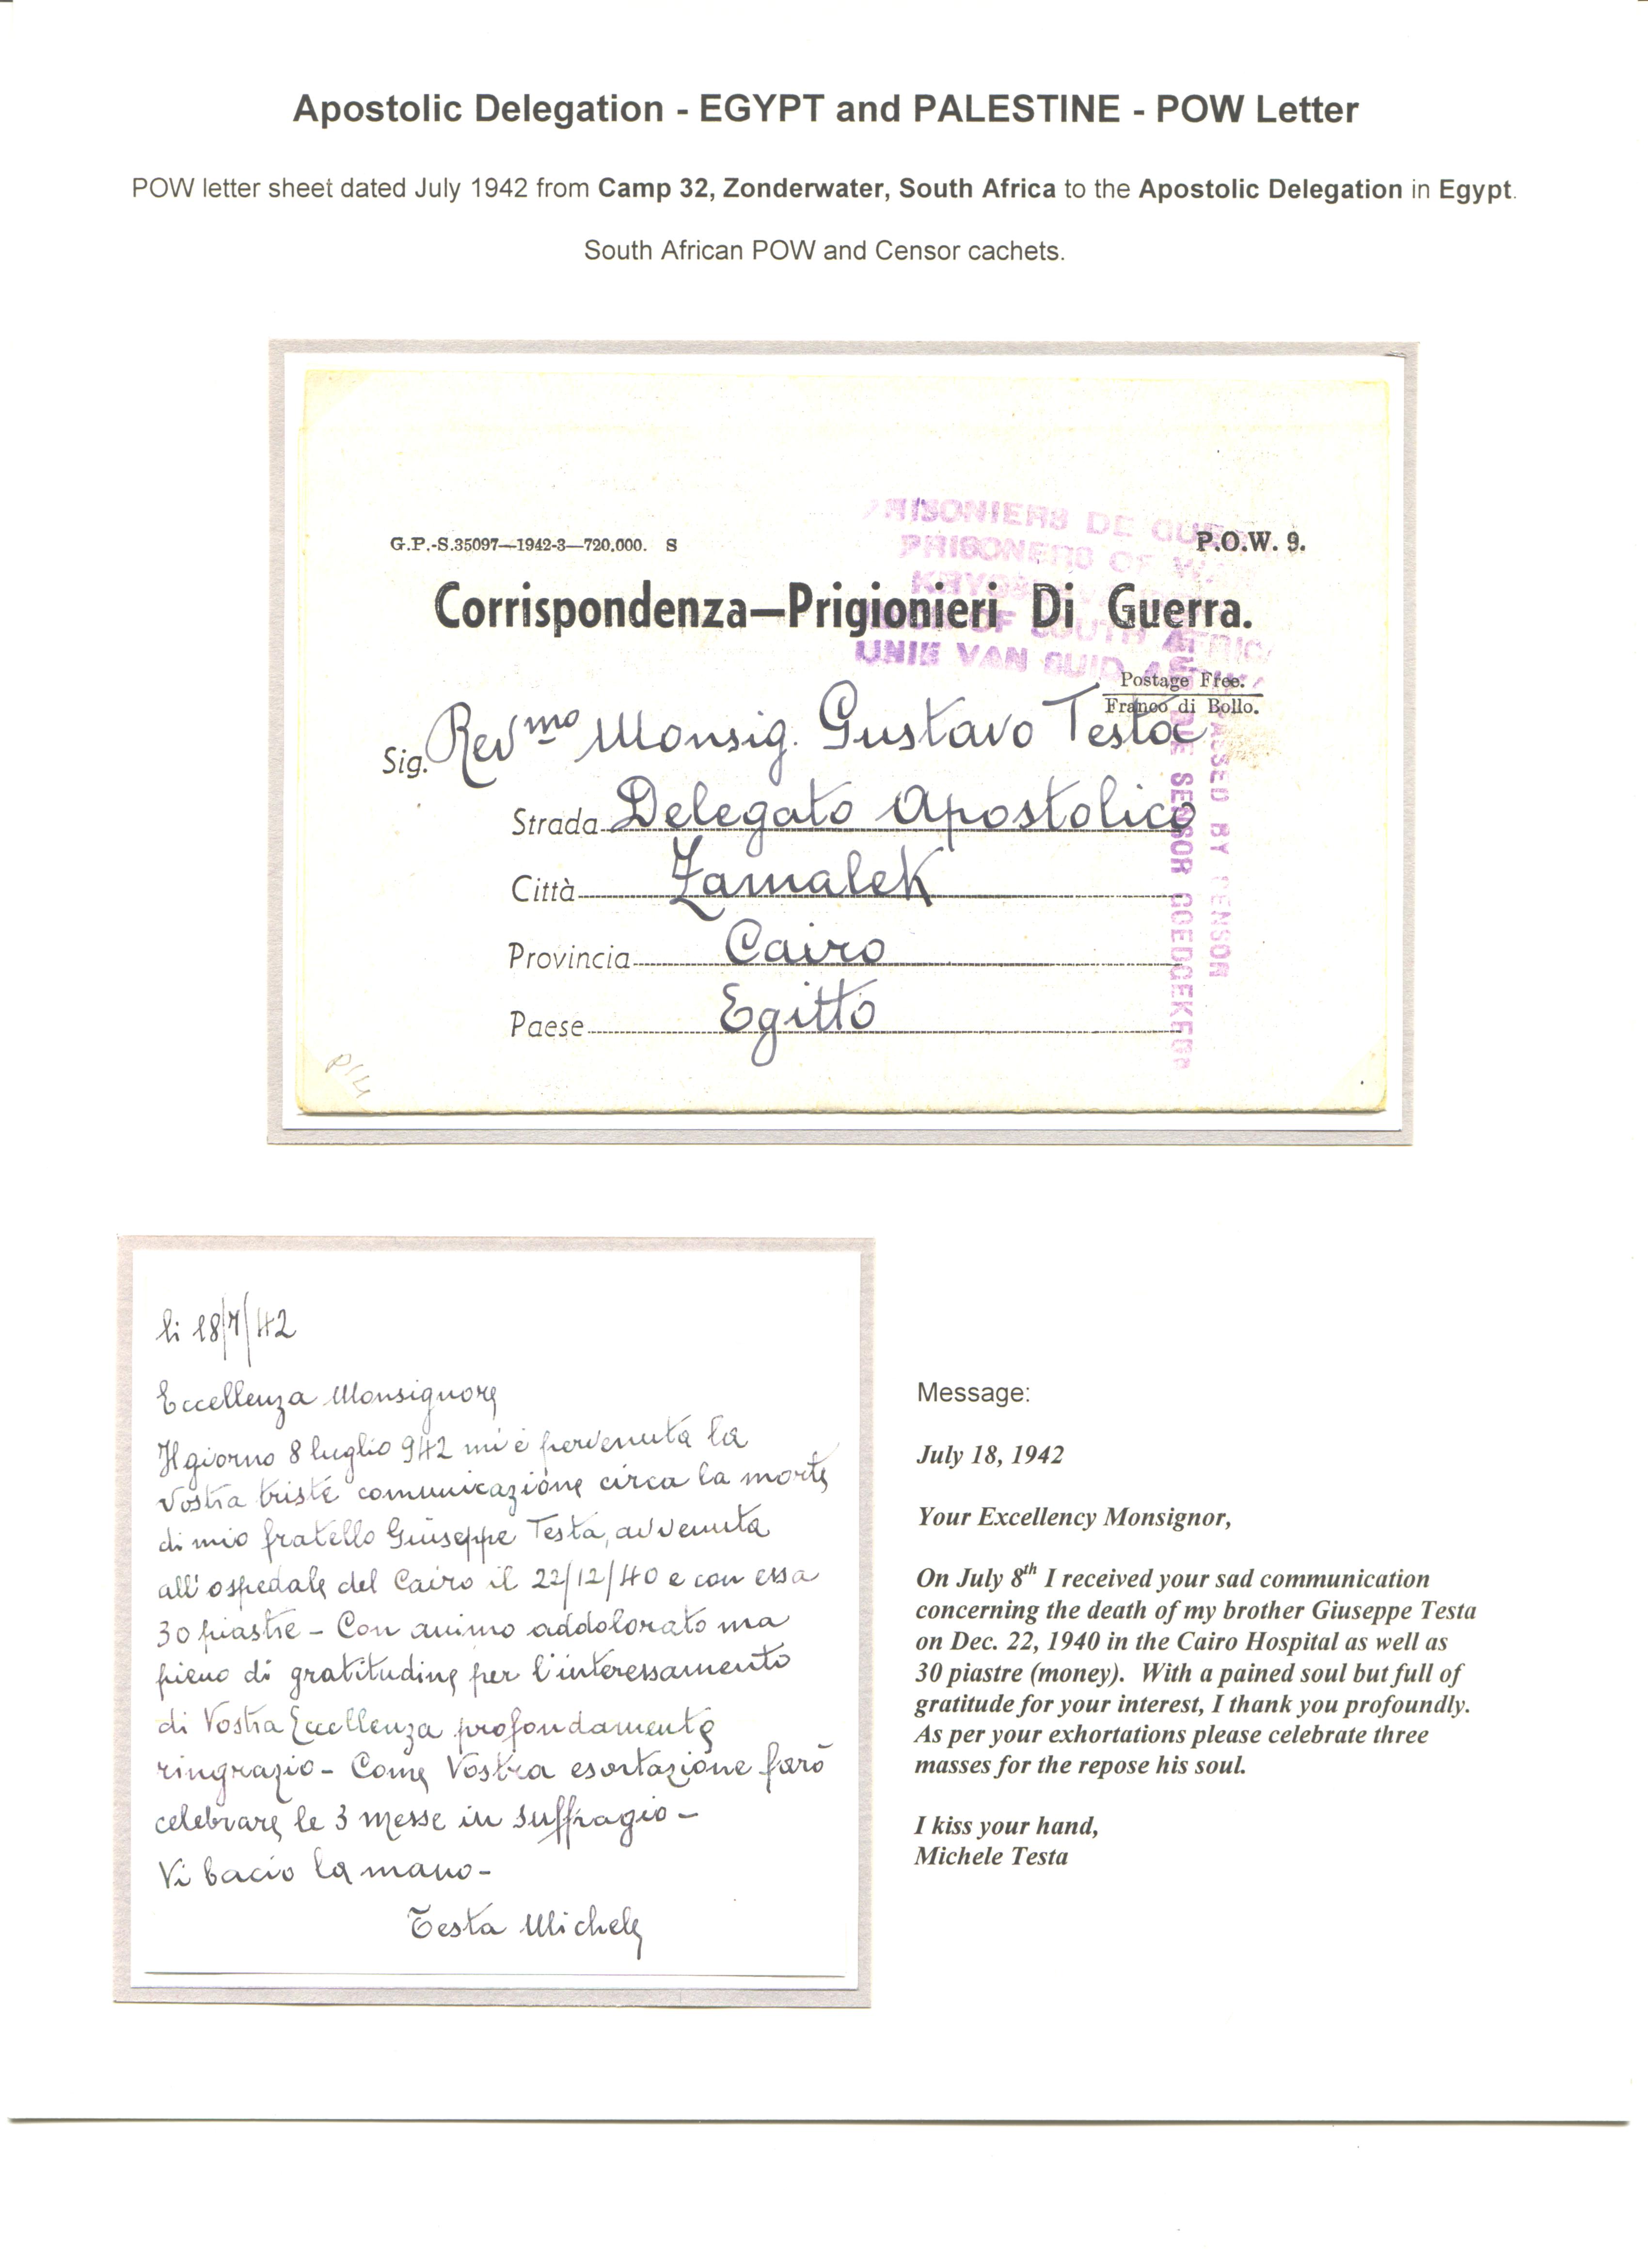 Apostolic Delegation - EGYPT and PALESTINE - POW Letter
POW letter sheet dated July 1942 from Camp 32, Zonderwater, South Africa to the Apostolic Delegation in Egypt.
South African POW and Censor cachets.
PRISONIERS DE GUE
G.P.-S.35097—1942-3—720,000. S
P.O.W. 9.
PRISONERS OF W
Corrispondenza—Prigionieri Di Guerra.
OF SOUTH AFRICA
UNIE VAN SUID
Postage Free.
Franco di Bollo.
Sig. Rev.mo Monsig. Gustavo Testa
Strada Delegato Apostolico
Città Zamalek
Provincia Cairo
Paese Egitto
PASSED BY CENSOR
DEUR DIE SENSOR GOEDGEKEUR
li 18/7/42
Eccellenza Monsignore
Il giorno 8 luglio 942 mi è pervenuta la
Vostra triste comunicazione circa la morte
di mio fratello Giuseppe Testa, avvenuta
all'ospedale del Cairo il 22/12/40 e con essa
30 piastre - Con animo addolorato ma
pieno di gratitudine per l'interessamento
di Vostra Eccellenza profondamente
ringrazio - Come Vostra esortazione farò
celebrare le 3 messe in suffragio -
Vi bacio la mano -
Testa Michele
Message:
July 18, 1942
Your Excellency Monsignor,
On July 8th I received your sad communication
concerning the death of my brother Giuseppe Testa
on Dec. 22, 1940 in the Cairo Hospital as well as
30 piastre (money). With a pained soul but full of
gratitude for your interest, I thank you profoundly.
As per your exhortations please celebrate three
masses for the repose his soul.
I kiss your hand,
Michele Testa